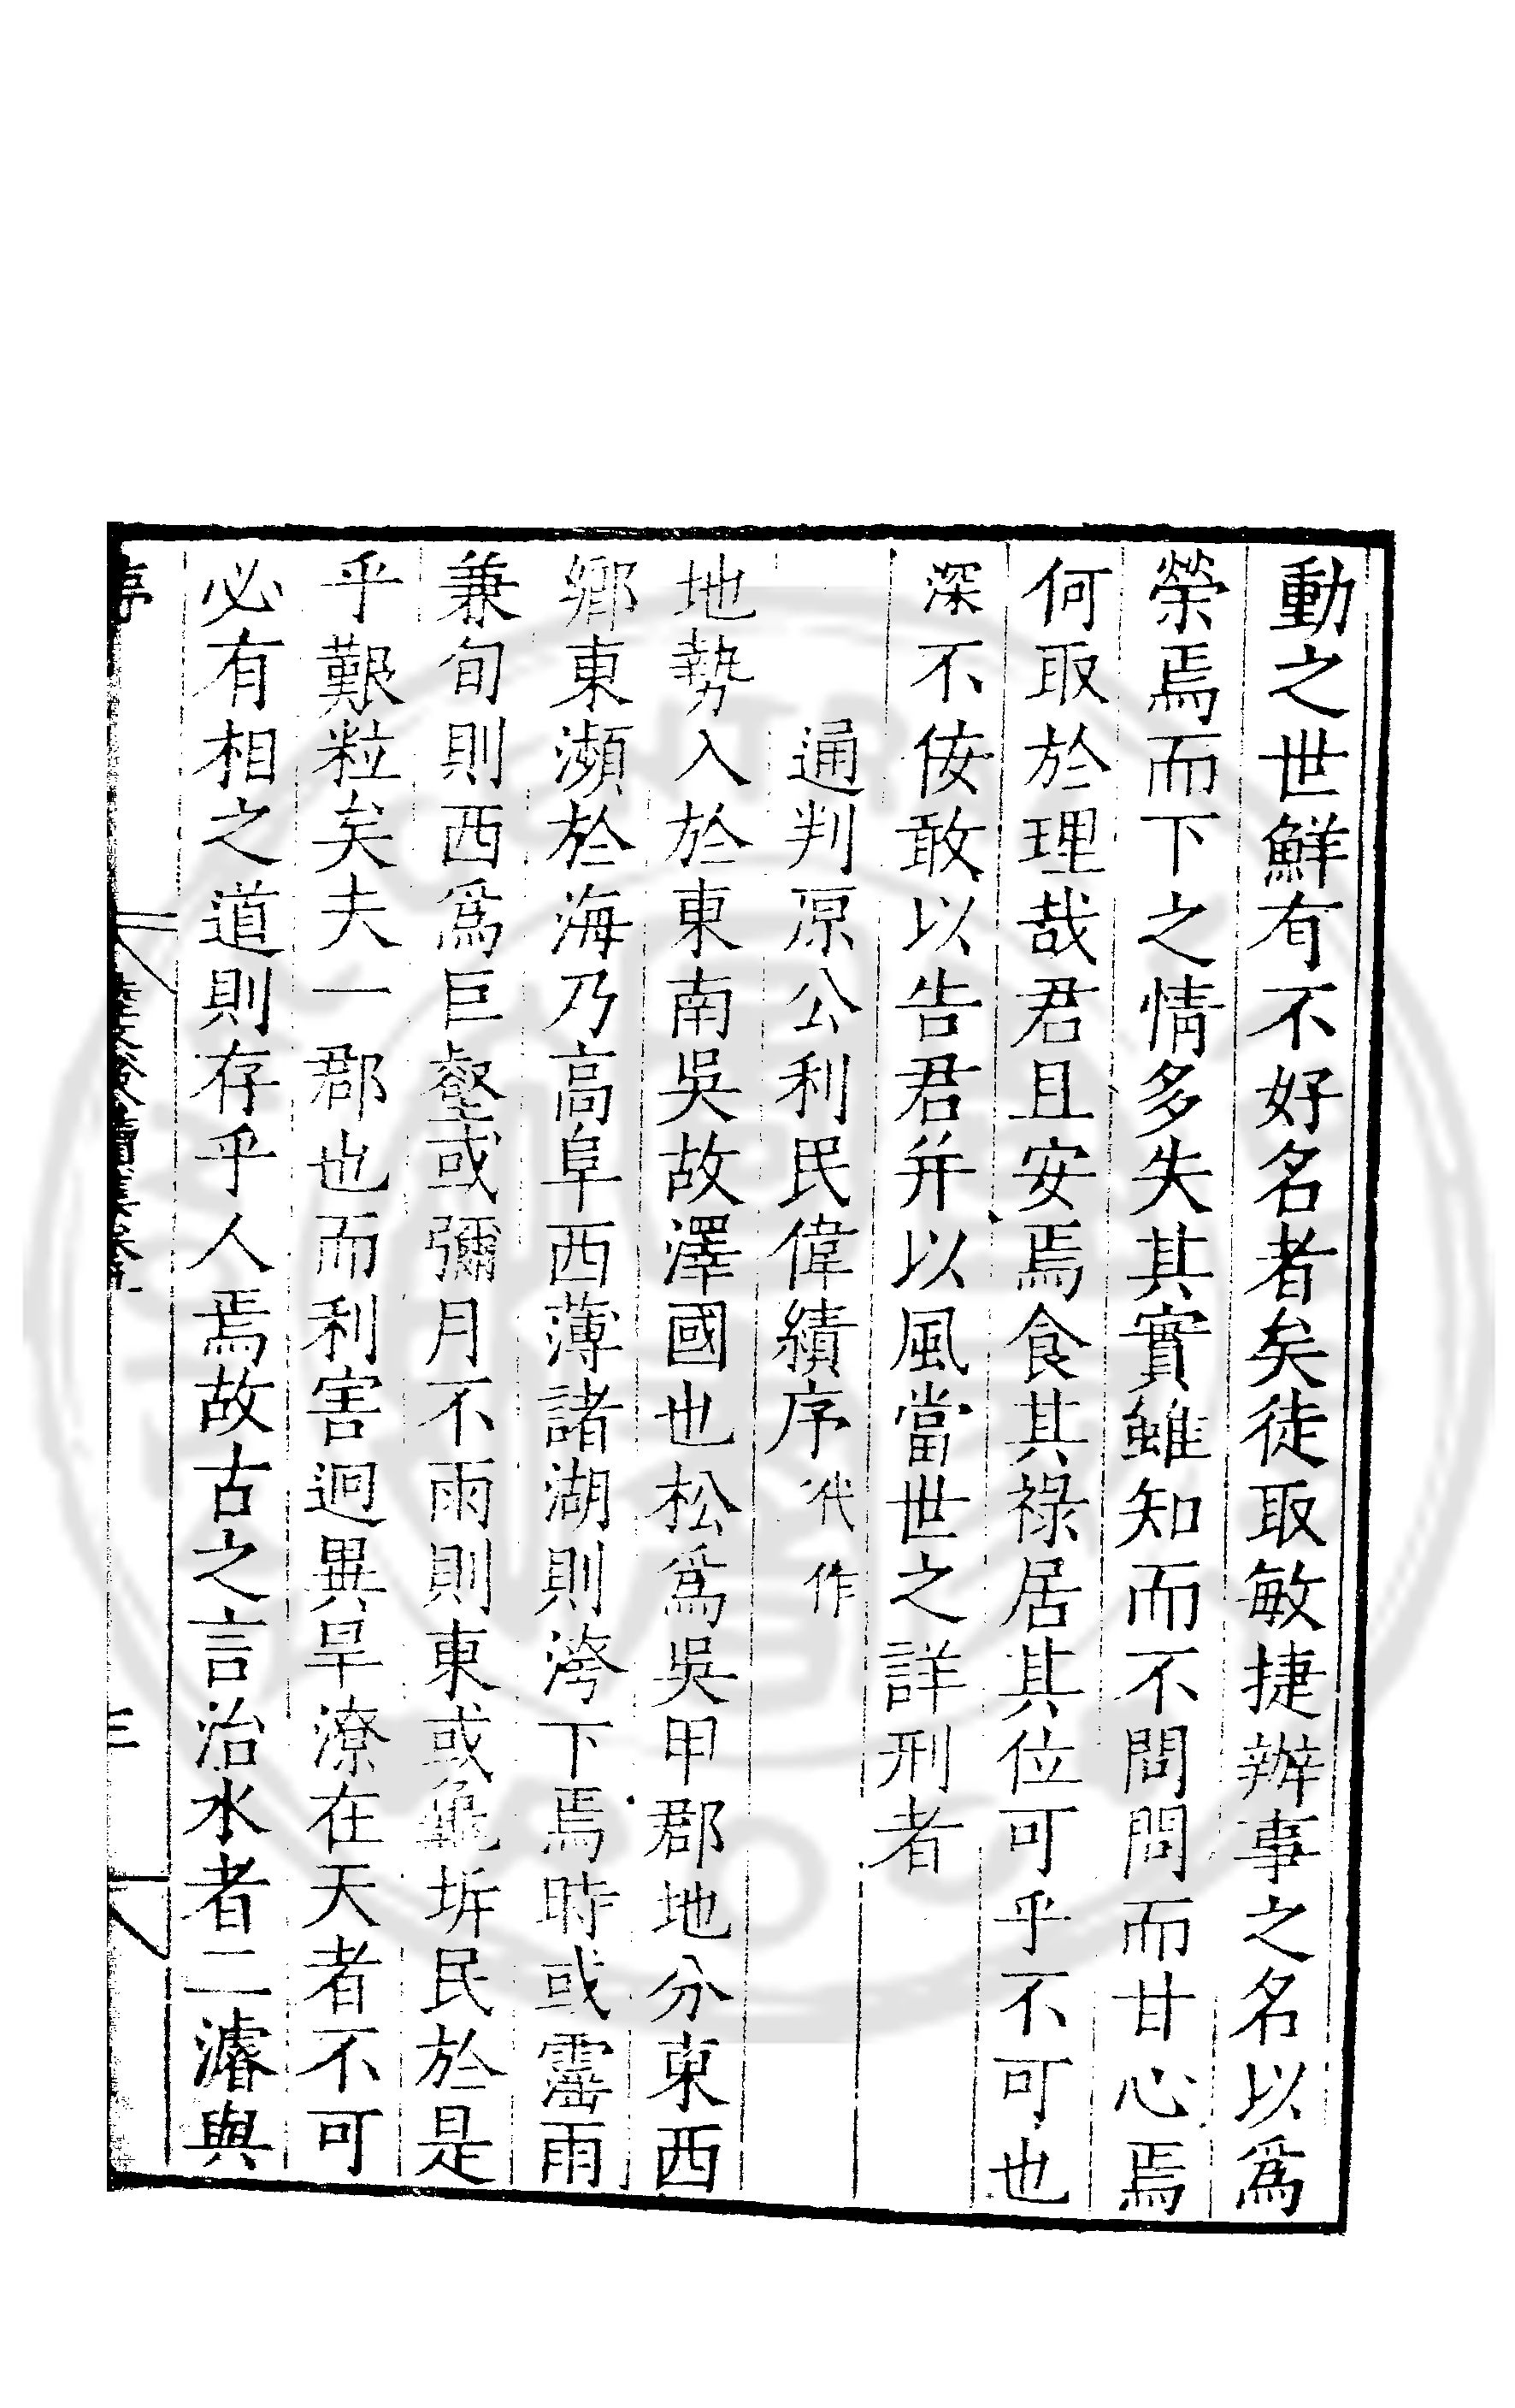 動之世鮮有不好名者矣徒取敏捷辦事之名以爲
榮焉而下之情多失其實雖知而不問問而甘心焉
何取於理哉君且安焉食其祿居其位可乎不可也
深不佞敢以告君并以風當世之詳刑者
通判原公利民偉績序代作
地勢入於東南吳故澤國也松爲吳甲郡地分東西
鄉東瀕於海乃高阜西薄諸湖則洿下焉時或霪雨
兼旬則西爲巨壑或彌月不雨則東或龜坼民於是
乎艱粒矣夫一郡也而利害迥異旱潦在天者不可
必有相之道則存乎人焉故古之言治水者二濬與
三